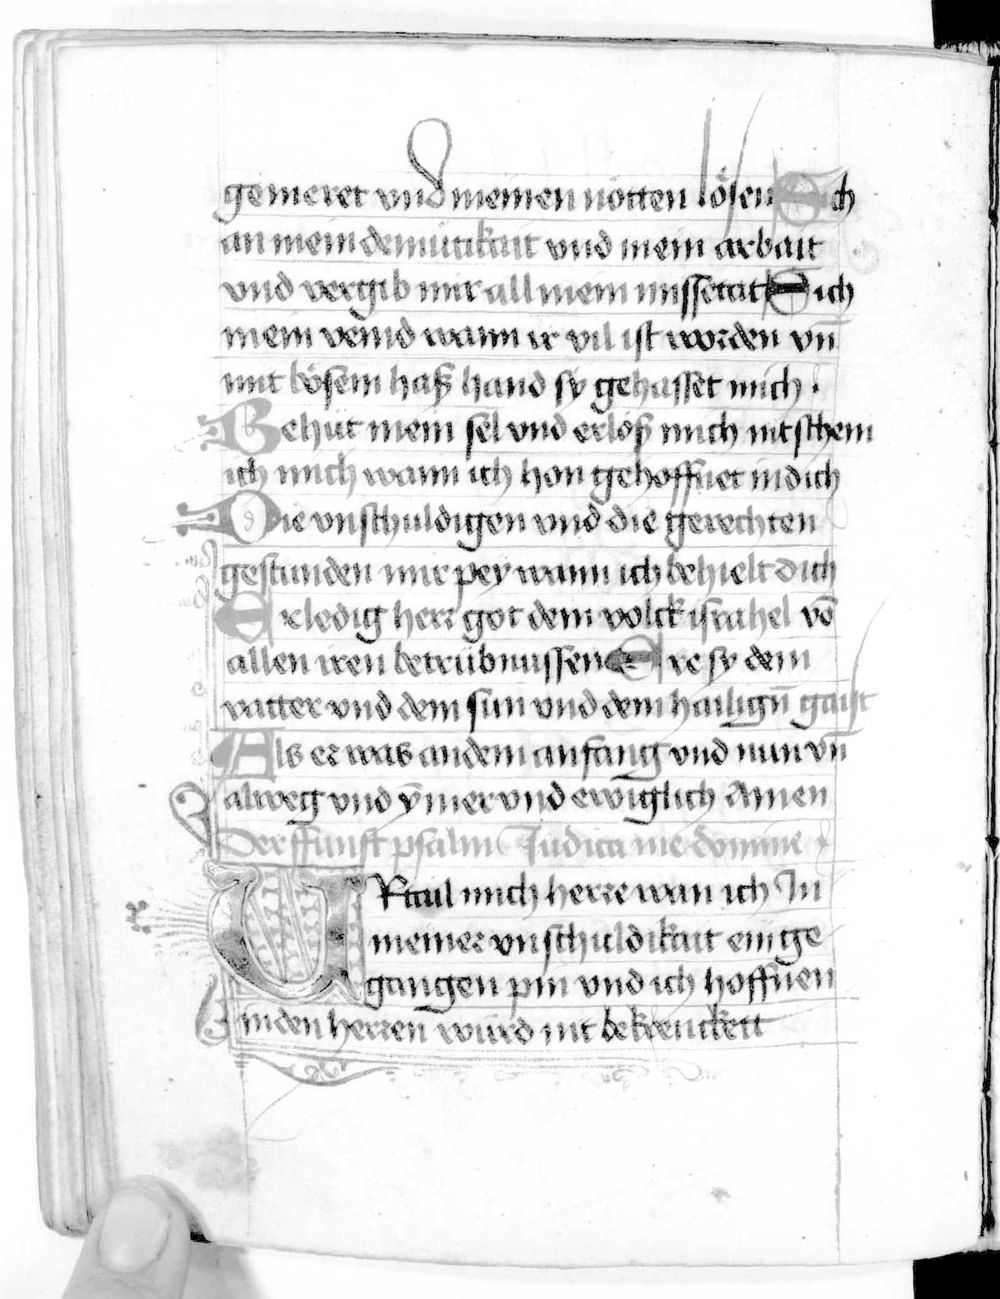 gemeret vnd meinen nötten lösen Sich
an mein demutikait vnd mein arbait
vnd vergib mir all mein missetat Sich
mein veind wann ir vil ist worden vn̄
mit bösem haß hand sy gehasset mich.
Behüt mein sel vnd erlöß mich nit schem
ich mich wann ich hon gehoffnet in dich
Die vnschuldigen vnd die gerechten
gestunden mir pey wann ich behielt dich
Erledig herr got dem volck israhel vō
allen iren betrübnussen Ere sy dem
vatter vnd dem sun vnd dem hailign̄ gaist
Als er was an dem anfang vnd nun vn̄
alweg vnd ÿmer vnd ewiglich Amen
Der ffunft psalm Judica me domine
URtail mich herre wan ich In
meiner vnschuldikait ein ge
gangen pin vnd ich hoffnen
in den herren würd nit bekrenckett